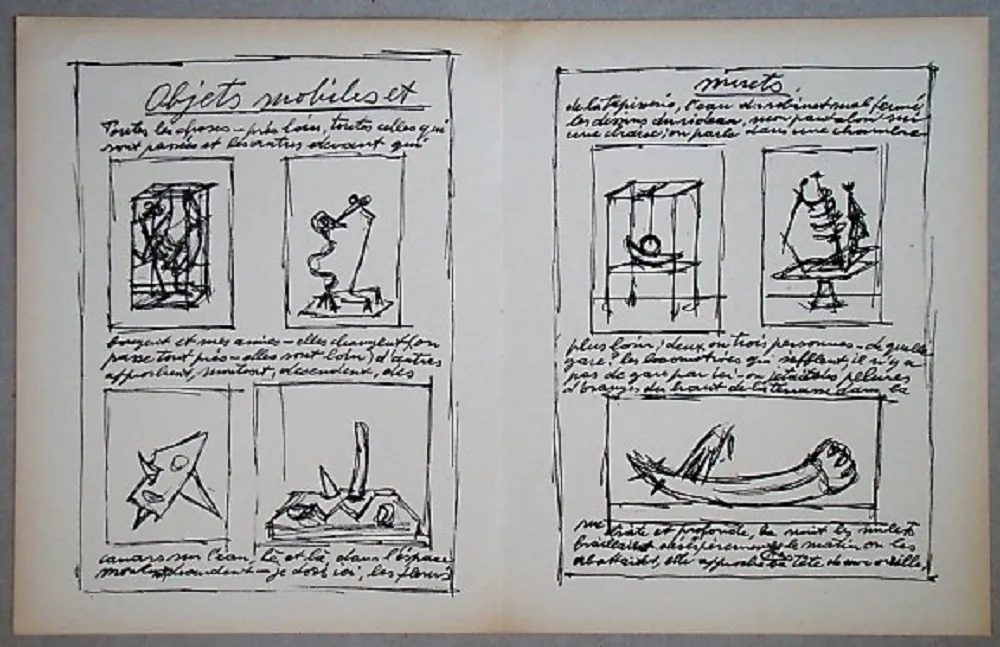 Objets mobiles et
Toutes les choses - près, loin, toutes celles qui
sont passées et les autres, devant qui
bougent et mes amies - elles changent (on
passe tout près - elles sont loin) d'autres
approchent, montent, descendent, des
canards sur l'eau, là et là dans l'espace
montent descendent - je dors ici, les fleurs
muets
de la tapisserie, l'eau du robinet mal fermé
les dessins du rideau, mon pantalon sur
une chaise, on parle dans une chambre
plus loin; deux ou trois personnes - de quelle
gare? les locomotives qui sifflent, il n'y a
pas de gare par ici - on jetait des pelures
d'oranges du haut de la terrasse dans la
rue étroite et profonde, la nuit les mulets
braillaient désespérément le matin on les
abattait, elle approche sa tête de mon oreille,